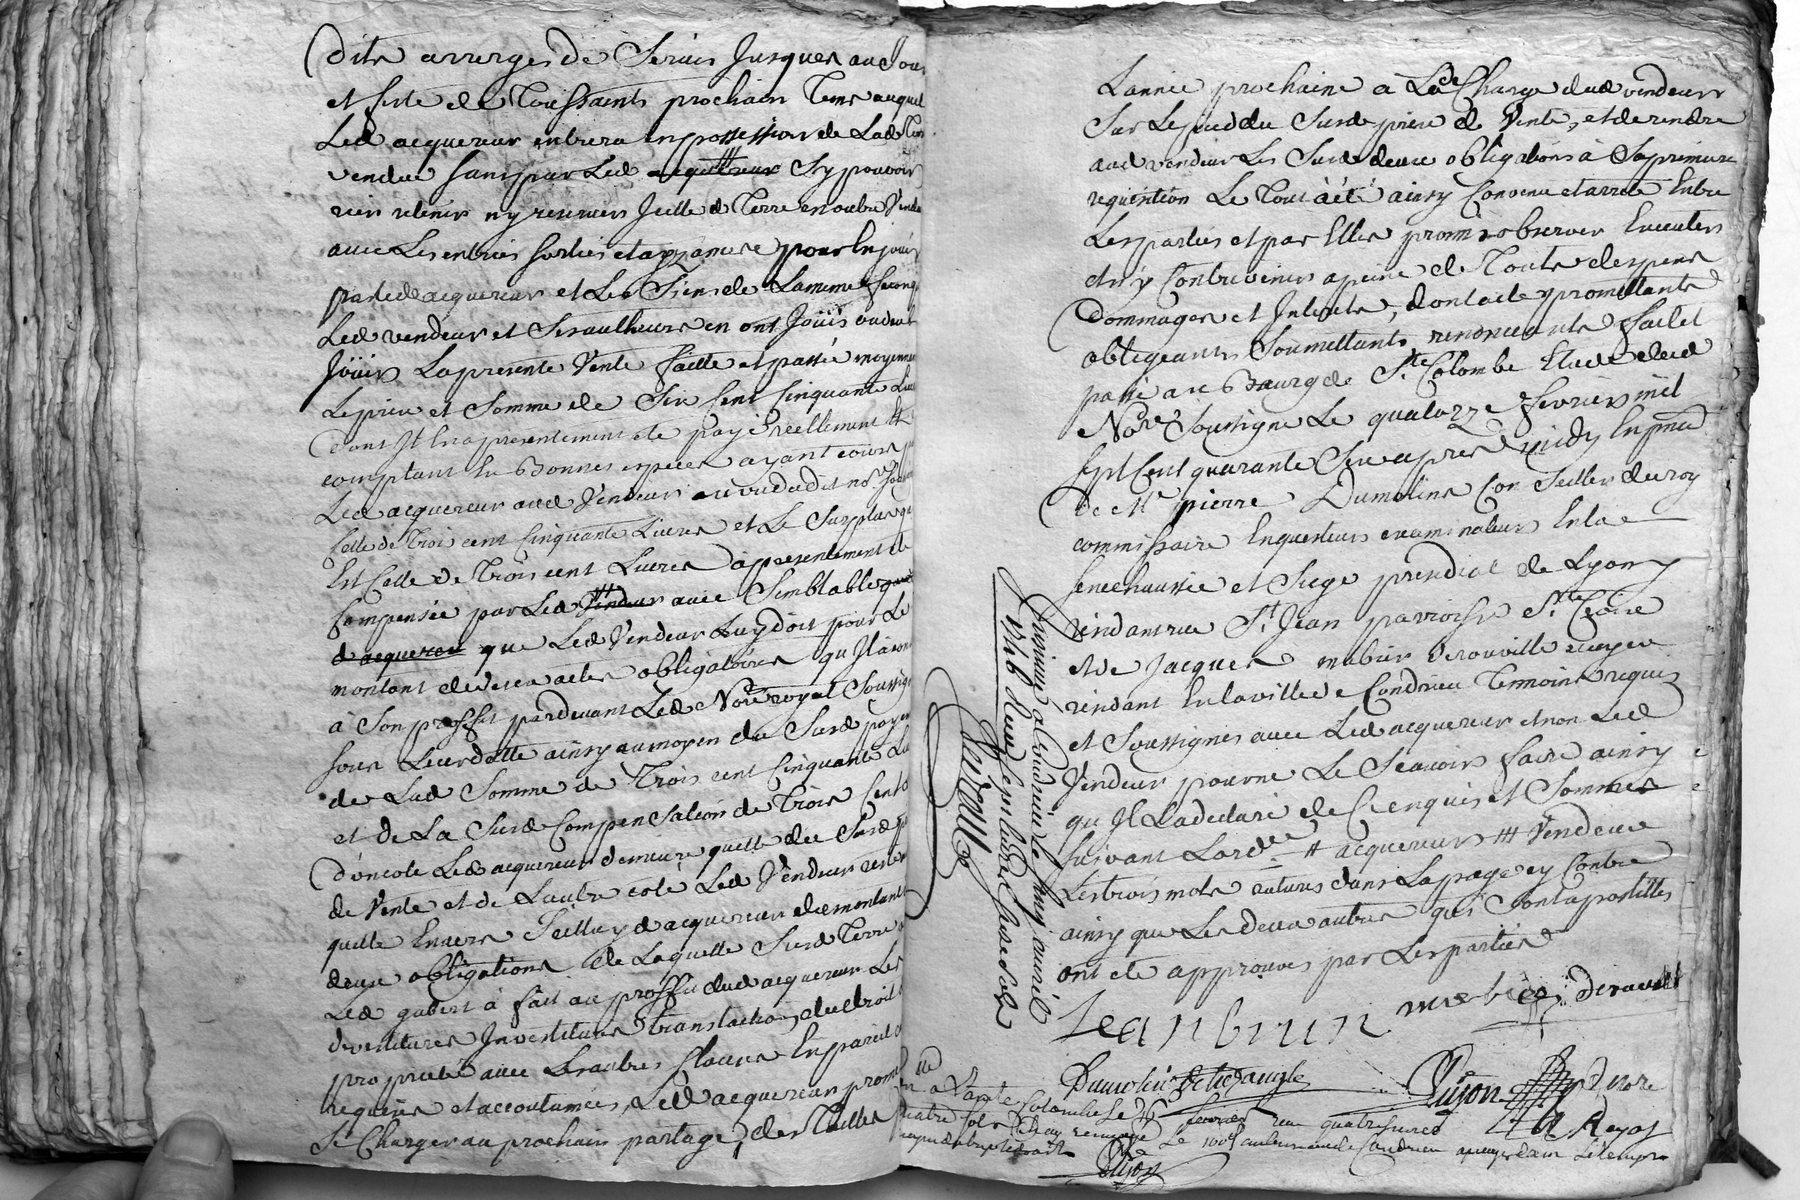 dits arrerages de Servis Jusques au Jour
et feste de Toussaints prochain Tems auquel
Led acquereur entrera en possession de Lad Terre
vendue sans par Led acquereur Sy pouvoir
rien retenir ny reserver Icelle d Terre en outre Vendue
avec Les entrées sorties et appances pour En jouir
par led acquereur et Les Siens de La meme façon que
Led vendeur et Ses autheurs en ont Joüis ou deub
Joüir La presente Vente faitte et passée moyennant
Le prix et Somme de Six Cent Cinquante Livres
dont Il En a presentement ete payé reellement Et
comptant En Bonnes especes ayant cours par
Led acquereur aud Vendeur au vu dud no.re Soussigné
Celle de Trois cent Cinquante Livres et Le Surplus qui
Est Celle de Trois cent Livres a presentement ete
Compensée par Led Vendeur avec Semblable
d acquereur que Led Vendeur Luy doit pour Le
montant de deux actes obligatoires qu'Il a
à Son proffit pardevant Led No.re royal Soussigné
Sous Leur datte ainsy au moyen du Susd payement
de Lad Somme de Trois cent Cinquante Livres
et de La Susd Compensation de Trois Cent
d'un coté Led acquereur demeure quitte du Susd prix
de Vente et de L'autre coté Led Vendeur reste
quitte Envers Icelluy d acquereur du montant
deux obligations de Laquelle Susd Terre
Led a fait au proffit dud acquereur Les
devestitures Investitures translation du droit
propriete avec Les autres Clauses En pareil
requises et accoutumées, Led acquereur promet
Se Charger au prochain partage des Tailles
L'année prochaine a La Charge dud vendeur
Sur Le pied du Susd prix de Vente, et de rendre
aud vendeur Les Susd deux obligations à Sa premiere
requisition Le Tout a été ainsy Convenu et arreté Entre
Les parties et par Elles promis observer Executer
et n'y Contrevenir a peine de Touts depens
Dommages et Interets, dont acte promettants
obligeants Soumettants renonceants fait et
passé au Bourg de S.te Colombe Etude dud
No.re Soussigné Le quatorze fevrier mil
Sept Cent quarante Six apres midy En pnce
de M.e pierre Dumolin Con Seiller du roy
commissaire Enquesteur examinateur En la
Senechaussée et Siege presidial de Lyon y
residant rue S.t Jean parroisse S.te Croix
et de Jacques mabiez Derouville ecuyer
residant En la ville de Condrieu Temoins requis
et Soussignés avec Led acquereur et non Led
Vendeur pour ne Le Scavoir faire ainsy
qu'Il L'a declaré de Ce enquis et Sommé
Suivant L'ord.ce # acquereur ### Vendeur
Les trois mots ratures dans La page cy Contre
ainsy que Les deux autres qui Sont apostilles
ont ete approuves par Les parties
Jean brun mabiez Derouville
Dumolin
Dujon Not Royal
Controllé a Condrieu le cinq avril
1746 Reçu Sept Livres Seize Sols
a S.te Colombe Le
quatre Sols
Le 100.e au bureau de Condrieu
Dujon